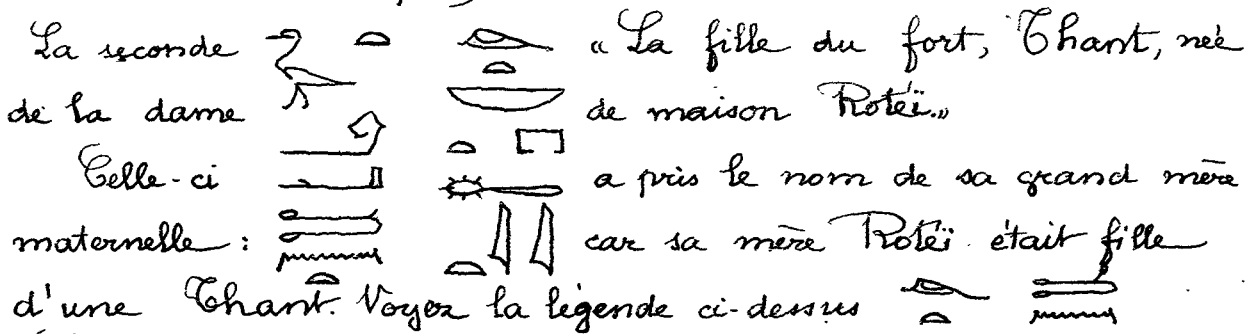 La seconde « La fille du fort, Thant, née
de la dame de maison Roteï. »
Celle-ci a pris le nom de sa grand mère
maternelle : car sa mère Roteï était fille
d'une Thant. Voyez la légende ci-dessus